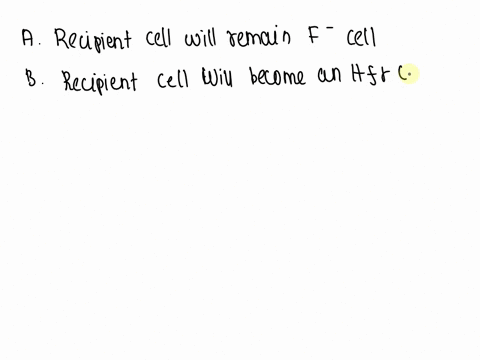 A. Recipient cell will remain F⁻ cell
B. Recipient cell will become an Hfr